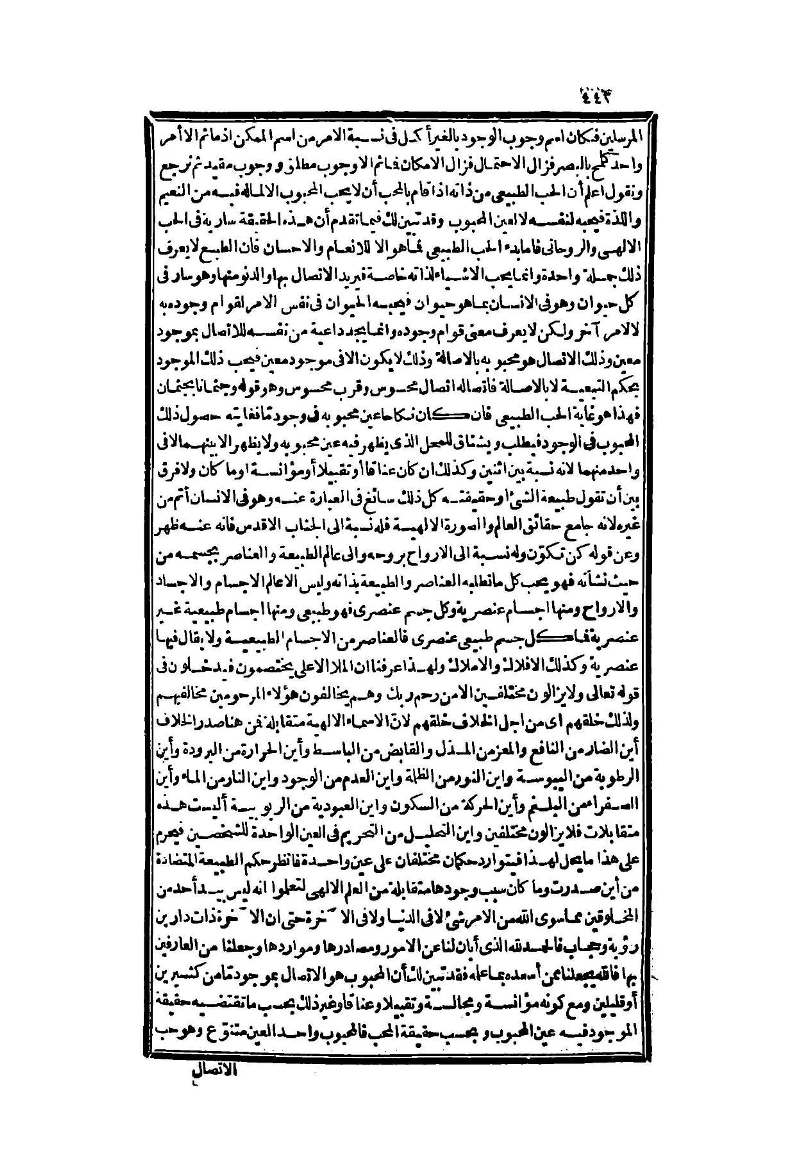 ٤٤٢
المرسلين فكان اسم وجوب الوجود بالغير أكمل فى نسبة الامر من اسم الممكن اذ ما ثم الا أمر
واحد كلمح بالبصر فزال الاحتمال فزال الامكان فما ثم الا وجوب مطلق و وجوب مقيد ثم نرجع
ونقول اعلم أن الحب الطبيعى من ذاته اذا قام بالمحب أن لا يحب المحبوب الا لما له فيه من النعيم
واللذة فيحبه لنفسه لا لعين المحبوب وقد تبين لك فيما تقدم أن هذه الحقيقة سارية فى الحب
الالهى والروحانى فاما بدء الحب الطبيعى فما هو الا للانعام والاحسان فان الطبع لا يعرف
ذلك جملة واحدة وانما يحب الاشياء لذاته خاصة فيريد الاتصال بها والدنو منها وهو سار فى
كل حيوان وهو فى الانسان بما هو حيوان فيحبه الحيوان فى نفس الامر لقوام وجوده به
لا لامر آخر ولكن لا يعرف معنى قوام وجوده وانما يجد داعية من نفسه للاتصال بموجود
معين وذلك الاتصال هو محبوبه بالاصالة وذلك لا يكون الا فى موجود معين فيحب ذلك الموجود
بحكم التبعية لا بالاصالة فاتصاله اتصال محسوس وقرب محسوس وهو قوله وجثمانا بجثمان
فهذا هو غاية الحب الطبيعى فان كان نكاحا عين محبوبه فى وجود ما فغايته حصول ذلك
المحبوب فى الوجود فيطلب ويشتاق للمحل الذى يظهر فيه عين محبوبه ولا يظهر الا بينهما لا فى
واحد منهما لانه نسبة بين اثنين وكذلك ان كان عناقا أو تقبيلا أو مؤانسة أو ما كان ولا فرق
بين أن تقول طبيعة الشئ أو حقيقته كل ذلك سائغ فى العبارة عنه وهو فى الانسان أتم من
غيره لانه جامع حقائق العالم والصورة الالهية فله نسبة الى الجناب الاقدس فانه عنه ظهر
وعن قوله كن تكون وله نسبة الى الارواح بروحه والى عالم الطبيعة والعناصر بجسمه من
حيث نشأته فهو يحب كل ما تطلبه العناصر والطبيعة بذاته وليس الا عالم الاجسام والاجساد
والارواح ومنها اجسام عنصرية وكل جسم عنصرى فهو طبيعى ومنها اجسام طبيعية غير
عنصرية فما كل جسم طبيعى عنصرى فالعناصر من الاجسام الطبيعية ولا يقال فيها
عنصرية وكذلك الافلاك والاملاك ولهذا عرفنا ان الملا الاعلى يختصمون فيدخلون فى
قوله تعالى ولا يزالون مختلفين الا من رحم ربك وهم يخالفون هؤلاء المرحومين مخالفيهم
ولذلك خلقهم اى من اجل الخلاف خلقهم لان الاسماء الالهية متقابلة فمن هنا صدر الخلاف
أين الضار من النافع والمعز من المذل والقابض من الباسط وأين الحرارة من البرودة وأين
الرطوبة من اليبوسة واين النور من الظلمة واين العدم من الوجود واين النار من الماء وأين
الصفراء من البلغم وأين الحركة من السكون واين العبودية من الربوبية أليست هذه
متقابلات فلا يزالون مختلفين واين التحليل من التحريم فى العين الواحدة للشخصين فيحرم
على هذا ما يحل لهذا فيتوارد حكمان مختلفان على عين واحدة فانظر حكم الطبيعة المتضادة
من أين صدرت وما كان سبب وجودها متقابلة من العلم الالهى لتعلموا انه ليس بيد أحد من
المخلوقين مما سوى الله من الامر شئ لا فى الدنيا ولا فى الآخرة حتى ان الآخرة ذات دارين
رؤية وحجاب فالحمد لله الذى أبان لنا عن الامور ومصادرها ومواردها وجعلنا من العارفين
بها فالله يجعلنا ممن أسعده بما علمه فقد تبين لك أن المحبوب هو الاتصال بموجود ما من كثيرين
أو قليلين ومع كونه مؤانسة ومجالسة وتقبيلا وعناقا وغير ذلك بحسب ما تقتضيه حقيقة
الموجود فيه عين المحبوب وبحسب حقيقة المحب فالمحبوب واحد العين متنوع وهو حب
الاتصال